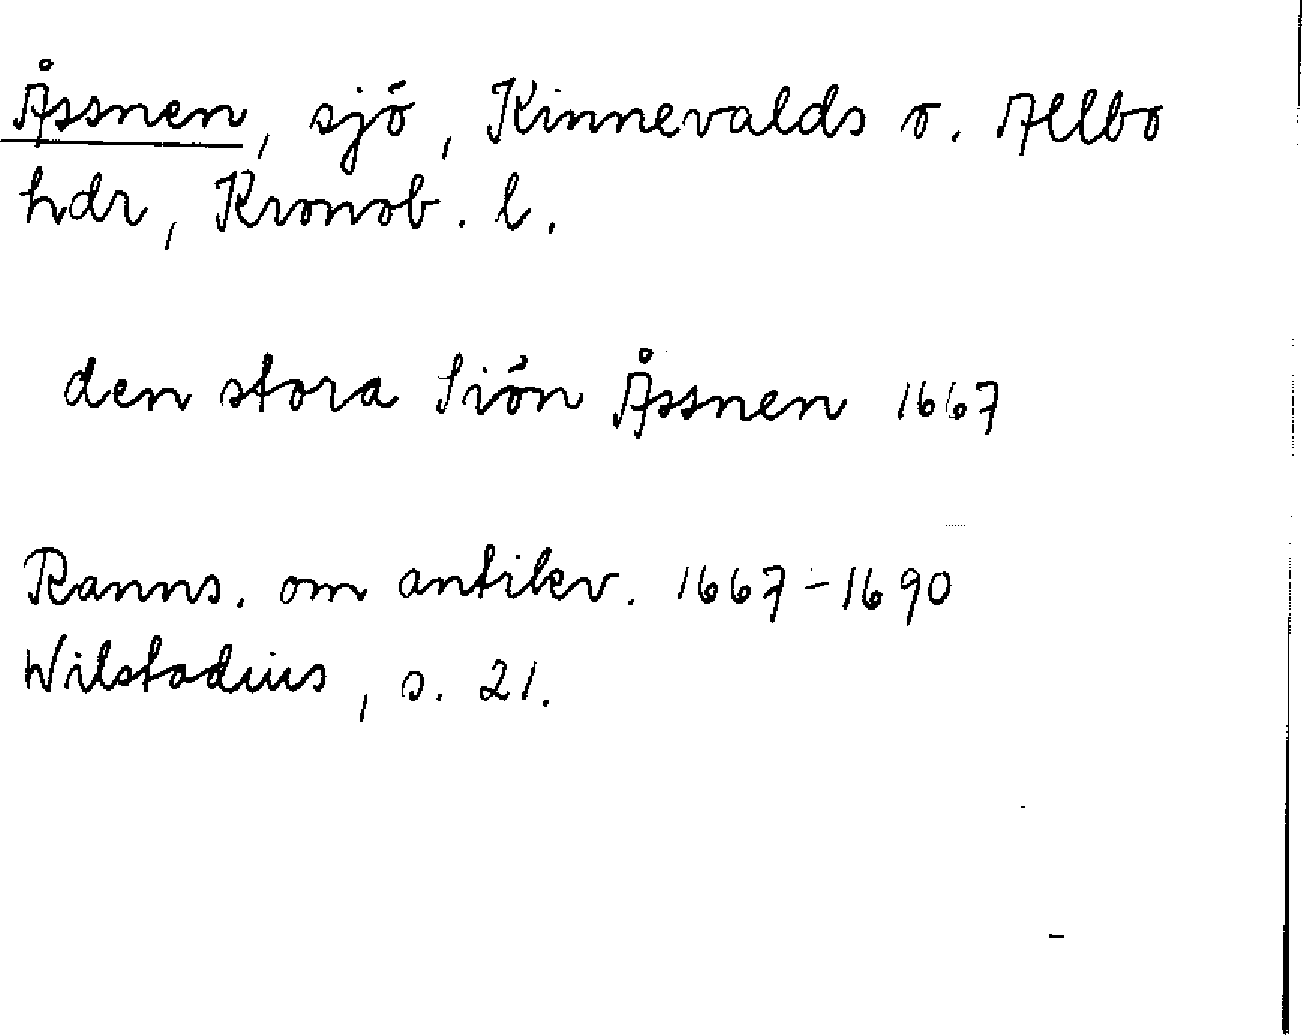 Åssnen, sjö, Kinnevalds o. Allbo
hdr, Kronob. l.
den stora Siön Åssnen 1667
Ranns. om antikv. 1667-1690
Wilstadius, s. 21.